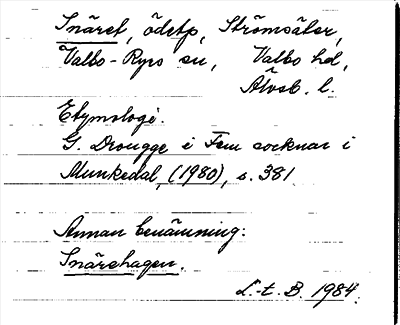 Snäret, ödetp, Strömsäter,
Valbo-Ryrs sn, Valbo hd,
Älvsb. l.
Etymologi.
G. Drougge i Fem socknar i
Munkedal, (1980), s. 381
Annan benämning:
Snärshagen.
L-t. B. 1984.